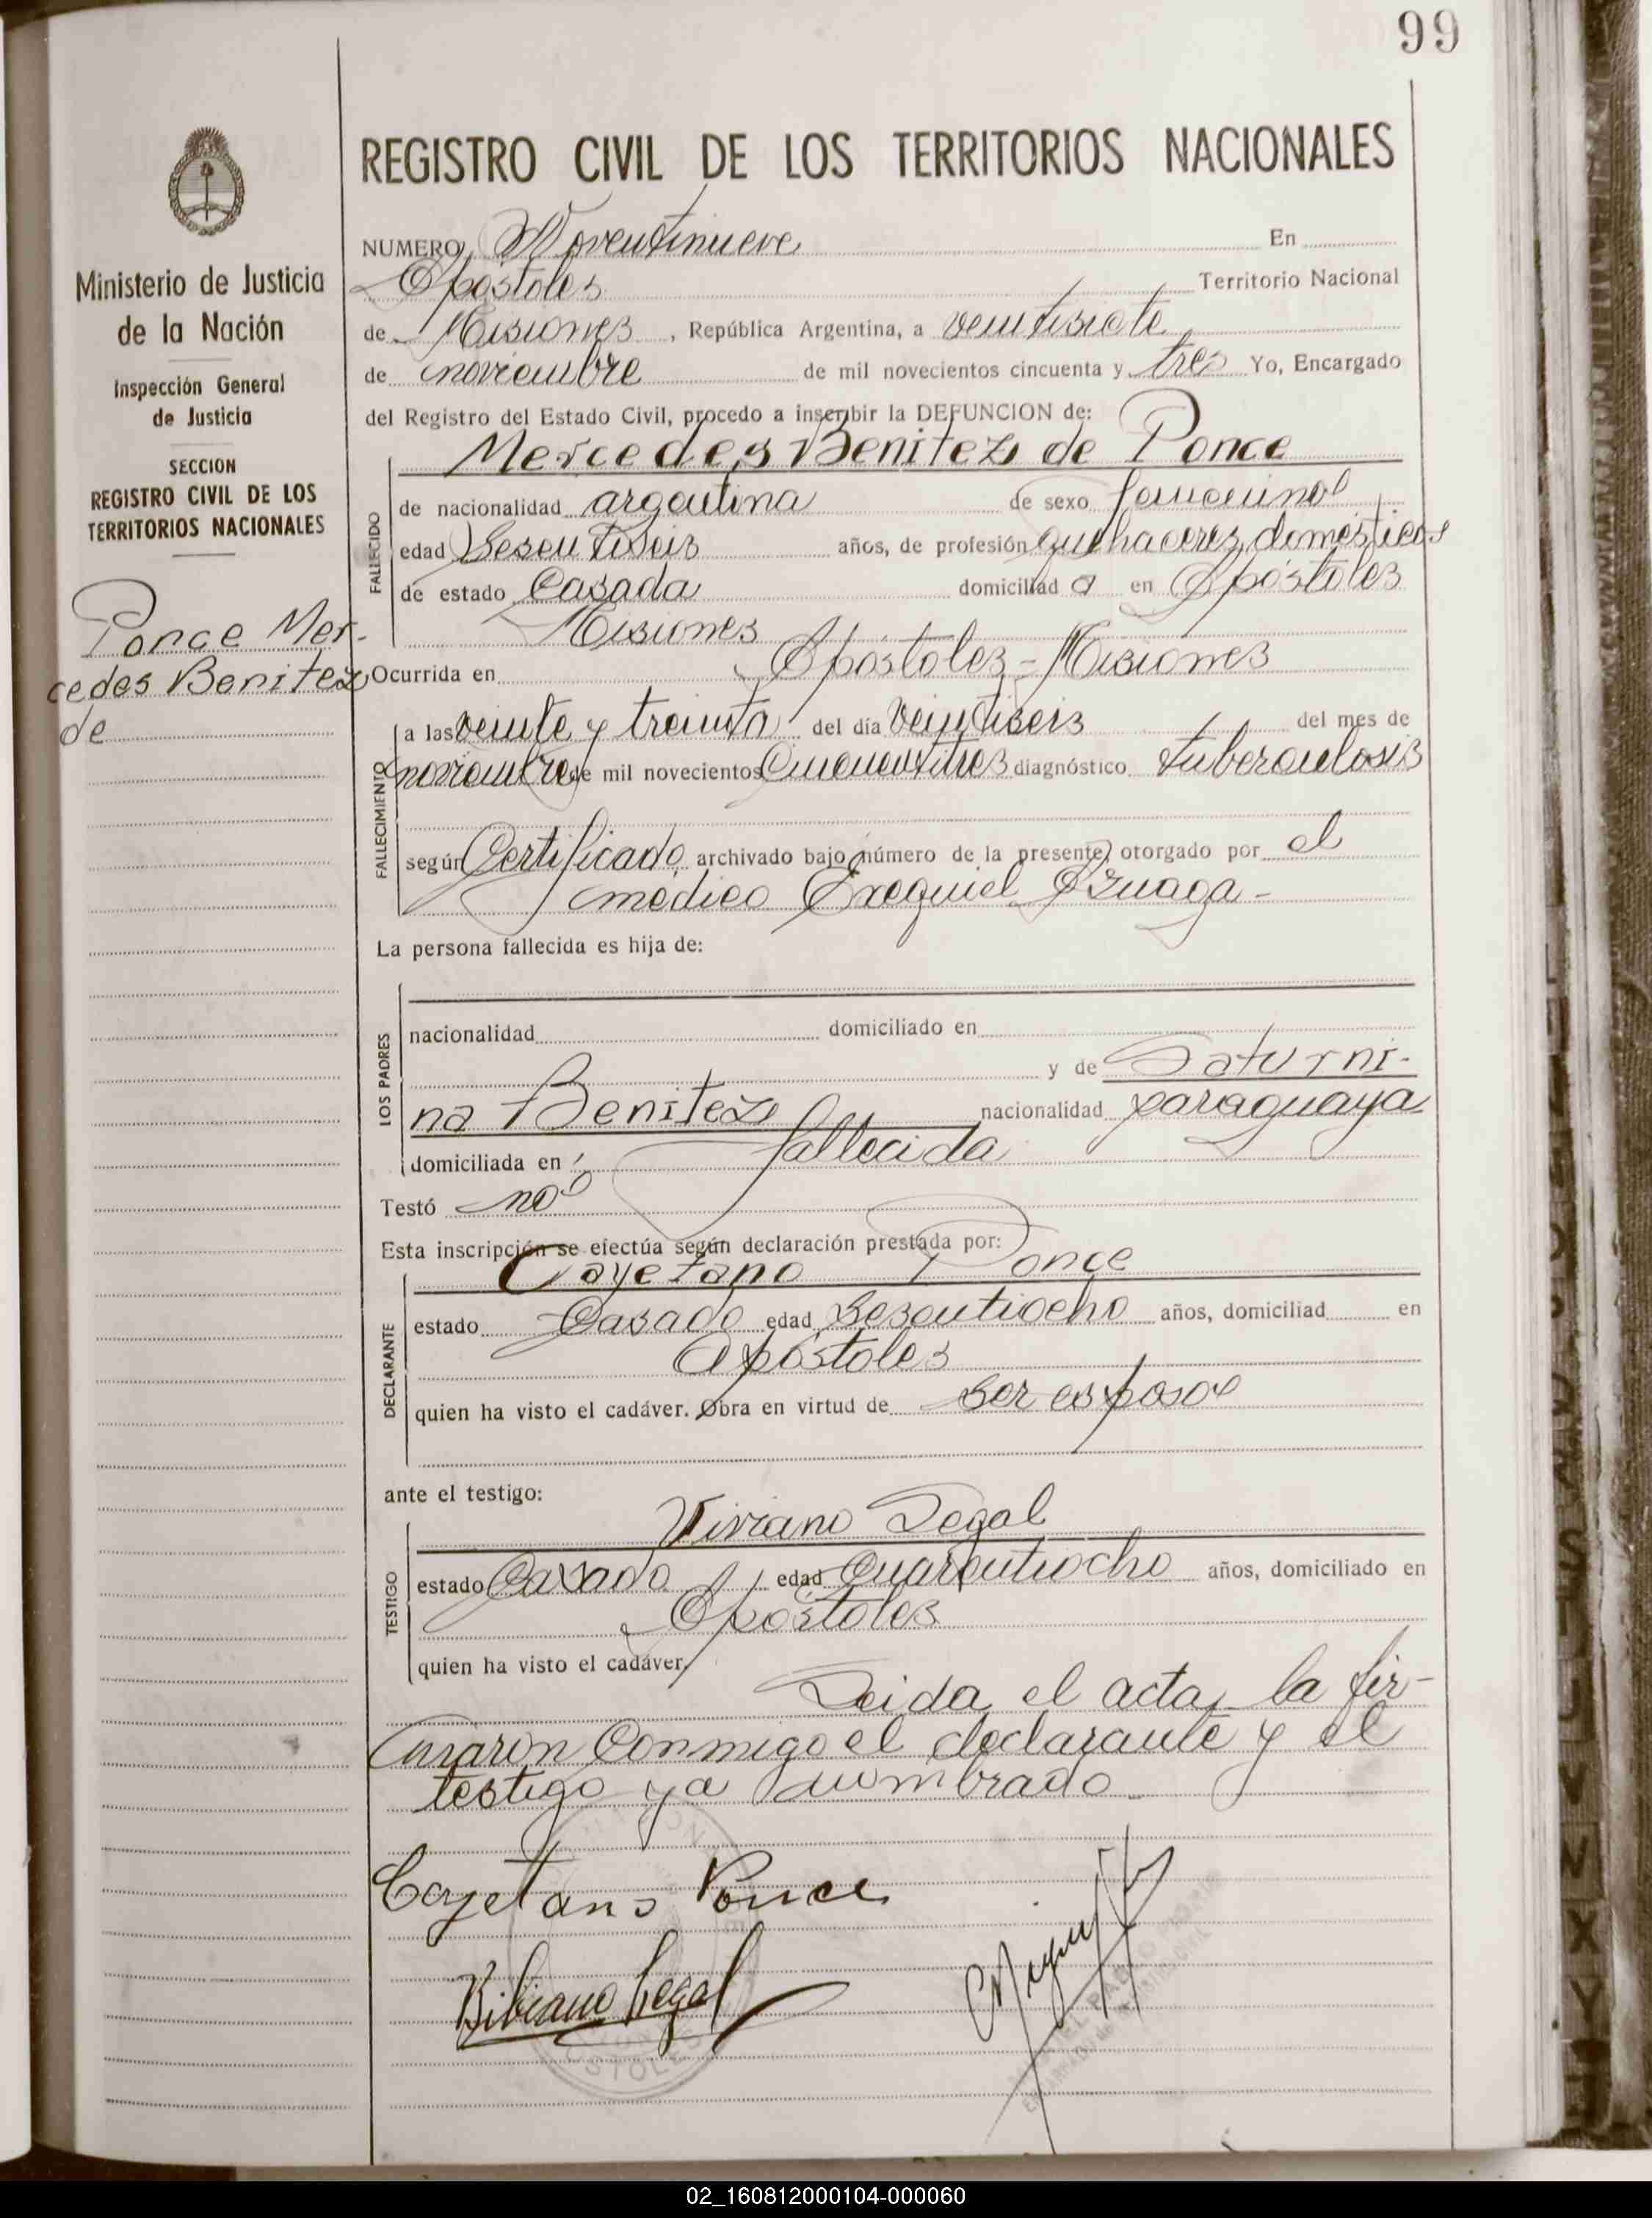 99
REGISTRO CIVIL DE LOS TERRITORIOS NACIONALES
Ministerio de Justicia
de la Nación
Inspección General
de Justicia
SECCION
REGISTRO CIVIL DE LOS
TERRITORIOS NACIONALES
Ponce Mer-
cedes Benitez
de
NUMERO Noventinueve En
Apóstoles Territorio Nacional
de Misiones, República Argentina, a veintisiete
de noviembre de mil novecientos cincuenta y tres Yo, Encargado
del Registro del Estado Civil, procedo a inscribir la DEFUNCION de:
Mercedes Benitez de Ponce
FALLECIDO
de nacionalidad argentina de sexo femenino
edad Sesentiseis años, de profesión quehaceres domésticos
de estado Casada domiciliada en Apóstoles
Misiones
Ocurrida en Apóstoles - Misiones
FALLECIMIENTO
a las veinte y treinta del día veintiseis del mes de
noviembre de mil novecientos Cincuentitres diagnóstico tuberculosis
según Certificado archivado bajo número de la presente, otorgado por el
médico Exequiel
La persona fallecida es hija de:
LOS PADRES
nacionalidad domiciliado en
y de Saturni-
na Benitez nacionalidad paraguaya
domiciliada en fallecida
Testó no
Esta inscripción se efectúa según declaración prestada por:
Cayetano Ponce
DECLARANTE
estado Casado edad Sesentiocho años, domiciliad en
Apóstoles
quien ha visto el cadáver. Obra en virtud de ser esposo
ante el testigo:
Viviano Legal
TESTIGO
estado Casado edad Cuarentiocho años, domiciliado en
Apóstoles
quien ha visto el cadáver.
Leida el acta, la fir-
maron conmigo el declarante y el
testigo ya nombrado
Cayetano Ponce
Bibiano Legal
02_160812000104-000060